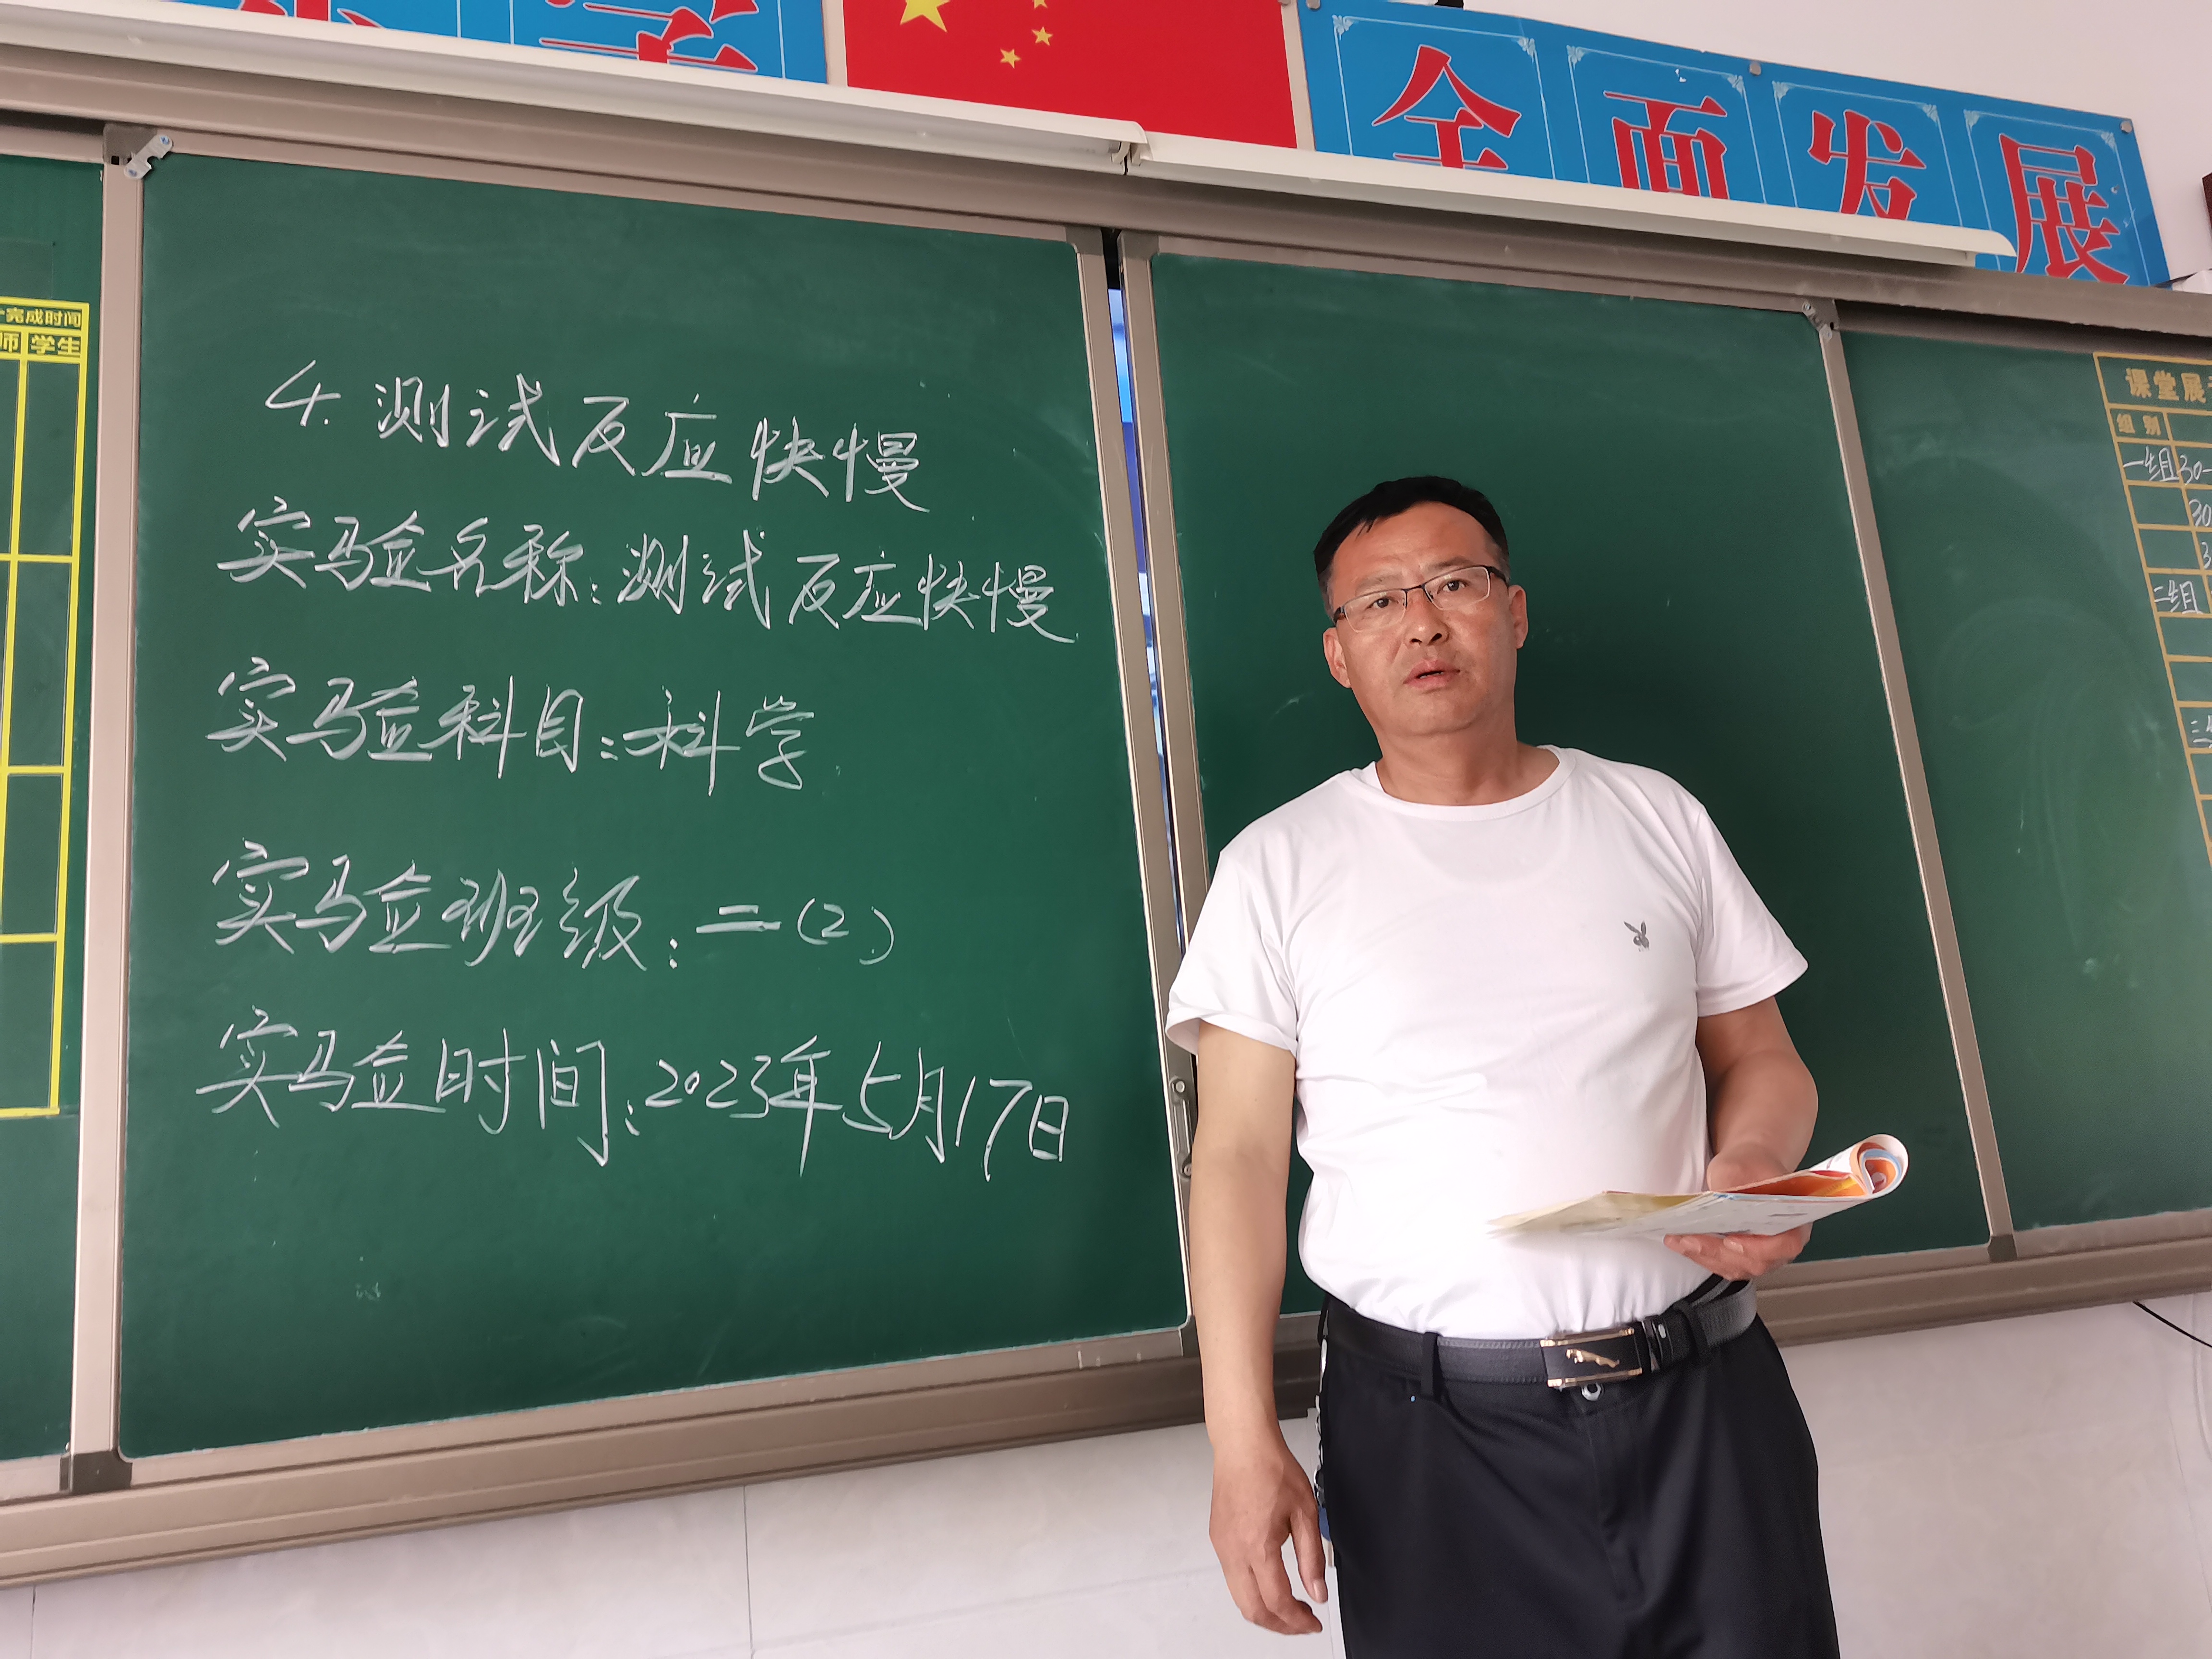 全面发展
完成时间
师 学生
4.测试反应快慢
实验名称:测试反应快慢
实验科目:科学
实验班级:二(2)
实验时间:2023年5月17日
课堂展
组别
一组 30
30
3
二组
三